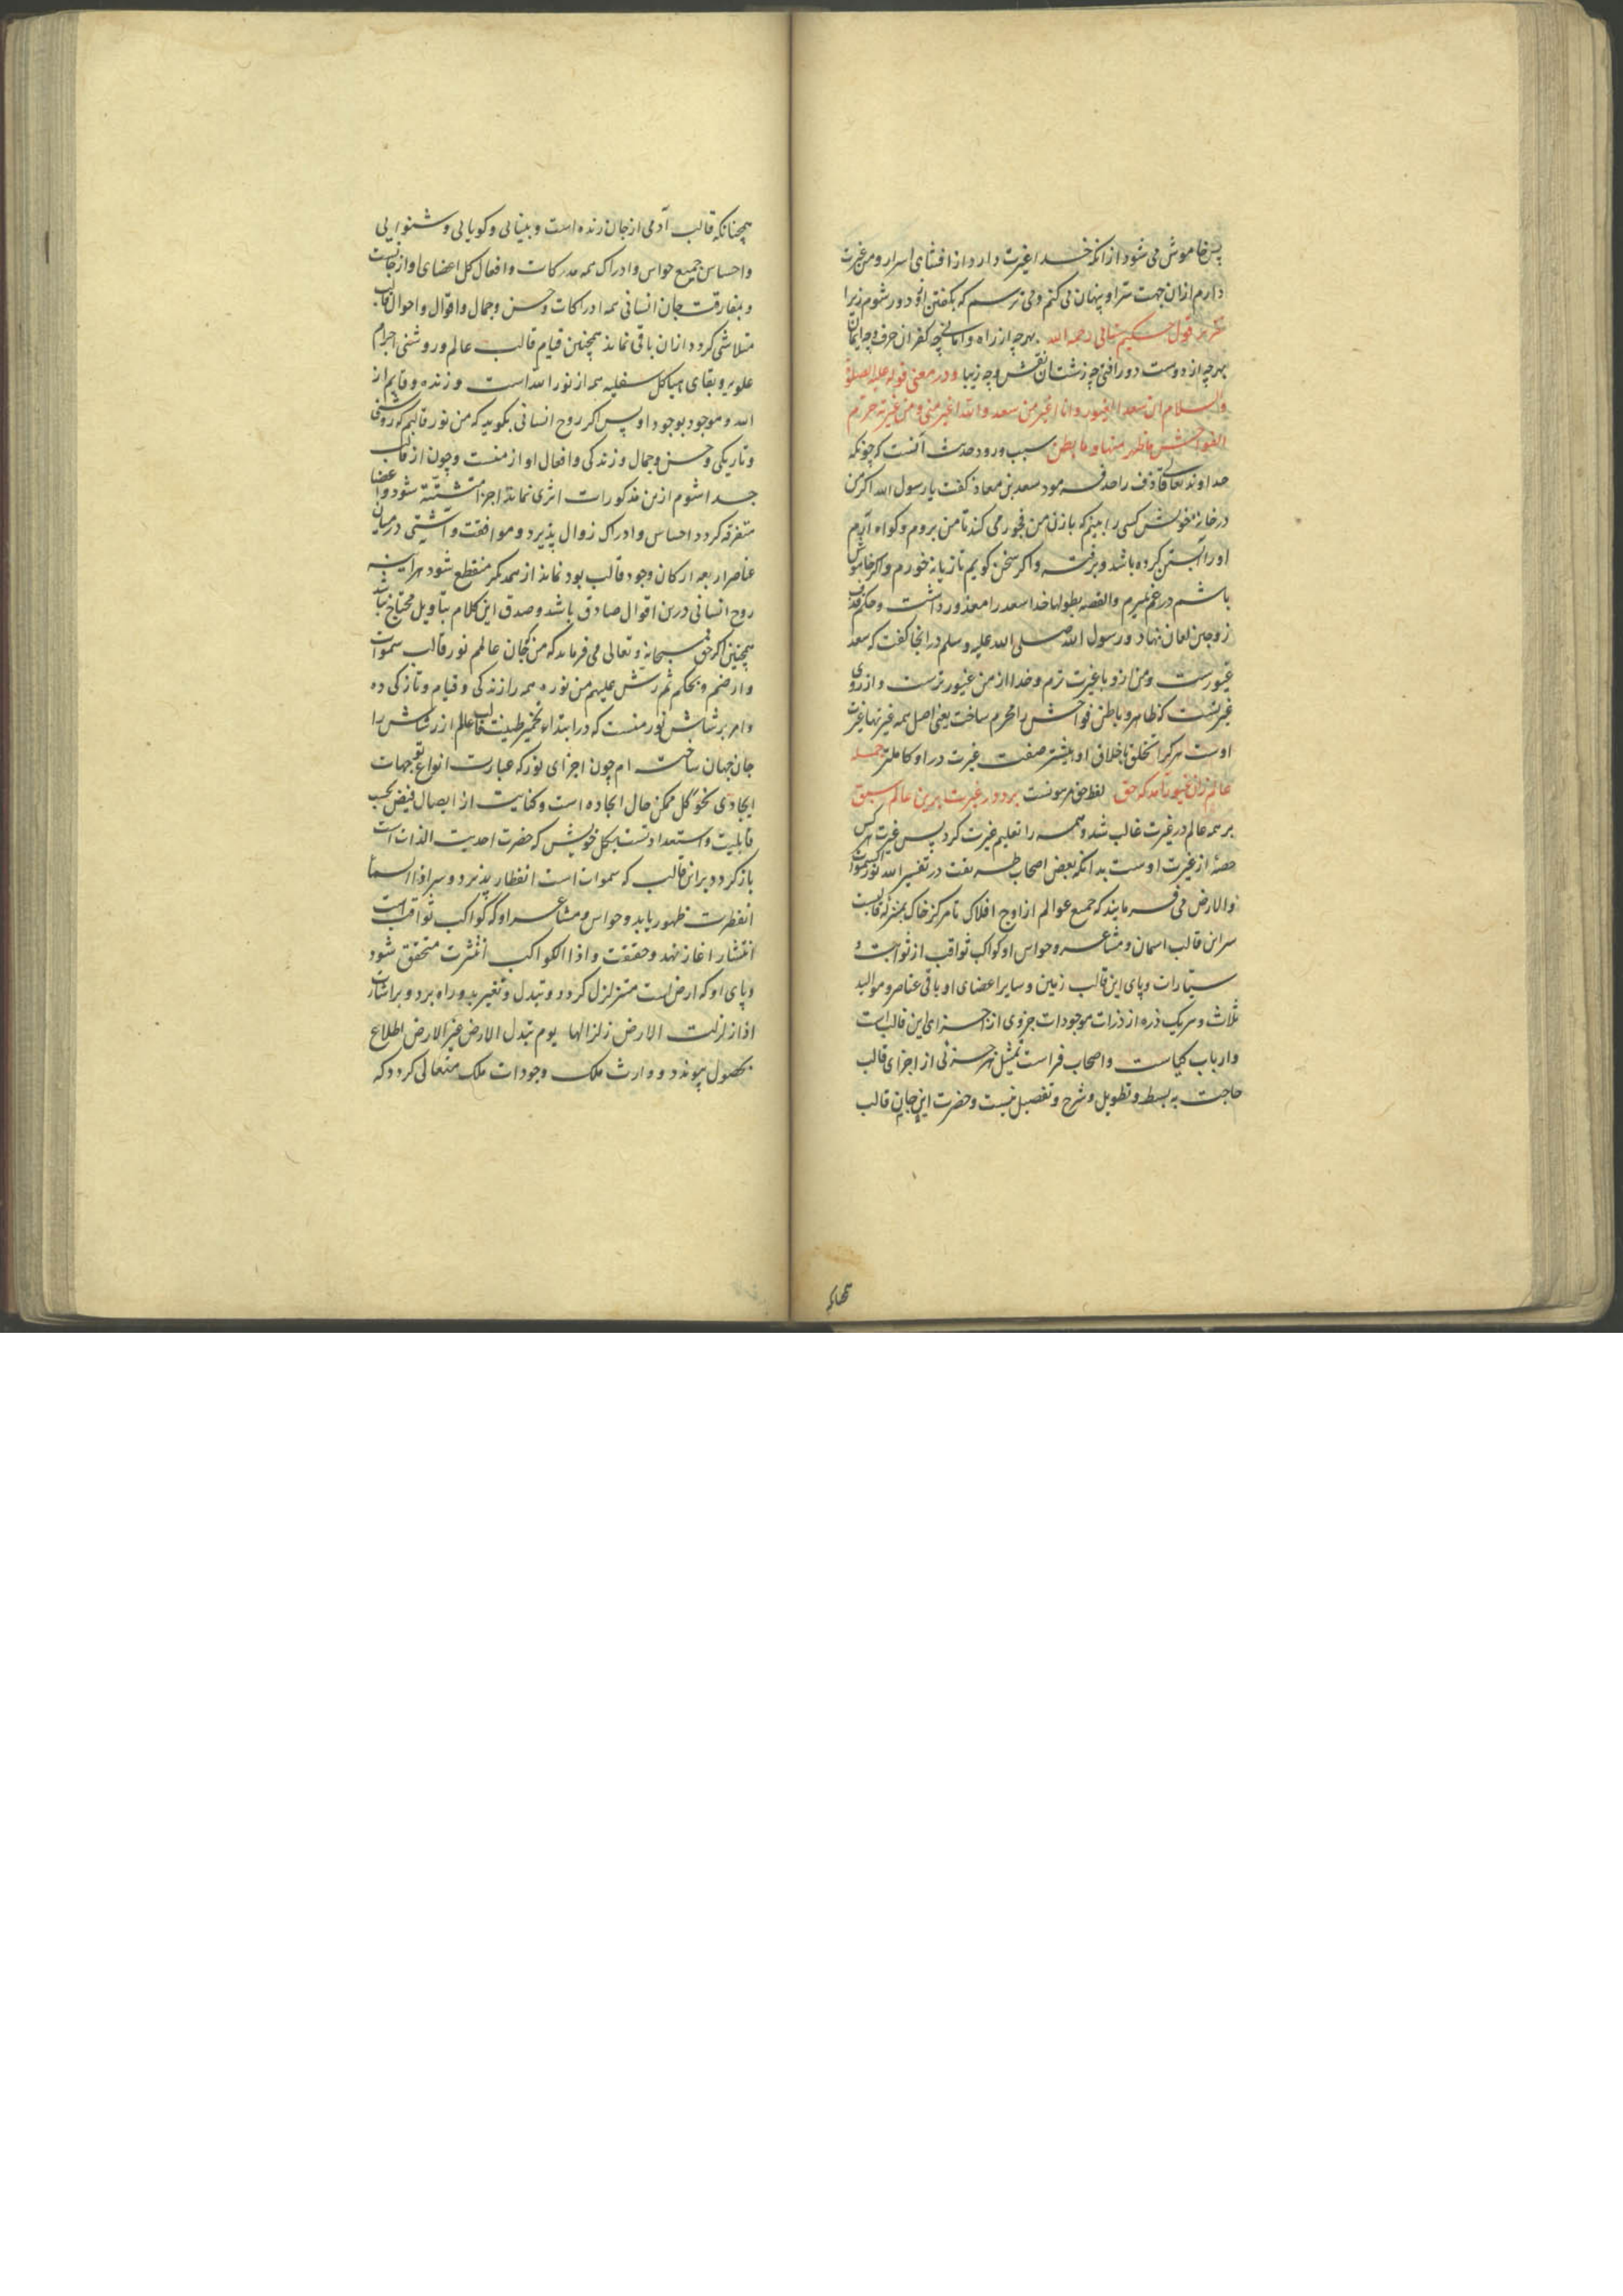 پس خاموش می شود از انکه خدا غیرت دارد از افشای اسرار و من غیرت
دارم ازان جهت سر او پنهان می کنم و می ترسم که بگفتن ازو دور شوم زیرا
تقریر قول حکیم سنائی رحمه الله بهرچه از راه وامانی چه کفر آن حرف و چه ایمان
بهرچه از دوست دور افتی چه زشت آن نقش و چه زیبا و در معنی قوله علیه الصلوة
والسلام ان سعدا لغیور وانا اغیر من سعد والله اغیر منی و من غیرته حرم
الفواحش ما ظهر منها وما بطن سبب ورود حدیث آنست که چونکه
خداوند تعالی قاذف را حد فرمود سعد بن معاذ گفت یا رسول الله اگر من
در خانه خویش کسی را بینم که با زن من فجور می کند تا من بروم و گواه آرم
او را آبستن کرده باشد و برفته و اگر سخن گویم تازیانه خورم و اگر خاموش
باشم در غم میرم والقصه بطولها خدا سعد را معذور داشت و حکم
زوجین لعان نهاد و رسول الله صلی الله علیه وسلم در انجا گفت که سعد
غیورست و من ازو با غیرت ترم و خدا از من غیور ترست و از روی
غیرتست که ظاهر و باطن فواحش را محرم ساخت یعنی اصل همه غیرتها غیرت
اوست هرکرا تخلق باخلاق او بیشتر صفت غیرت در او کاملتر جمله
عالم زان غیور آمد که حق لفظ حق مرهونست برد در غیرت برین عالم سبق
بر همه عالم در غیرت غالب شد و همه را تعلیم غیرت کرد پس غیرت هر کس
حصه از غیرت اوست بدانکه بعض اصحاب طریقت در تفسیر الله نور السموات
والارض می فرمایند که جمیع عوالم از اوج افلاک تا مرکز خاک بمنزله قالبیست
سر این قالب اسمان و مشاعر و حواس او کواکب ثواقب از ثوابت و
سیارات و پای این قالب زمین و سایر اعضای او باقی عناصر و موالید
ثلاث و هر یک ذره از ذرات موجودات جزوی از اجزای این قالب است
و ارباب کیاست و اصحاب فراست تمثیل هر جزئی از اجزای قالب
حاجت به بسط و تطویل و شرح و تفصیل نیست و حضرت این جان قالب
همچنانکه قالب آدمی از جان زنده است و بینائی و کویایی و شنوایی
و احساس جمیع حواس و ادراک همه مدرکات و افعال کل اعضای او از جانست
و بمفارقت جان انسانی همه ادراکات و حسن و جمال و اقوال و احوال قالب
متلاشی کردد ازان باقی نماند همچنین قیام قالب عالم و روشنی اجرام
علویه و بقای هیاکل سفلیه همه از نور الله است و زنده و قایم از
الله و موجود بوجود او پس اکر روح انسانی بکوید که من نور قالبم که روشنی
و تاریکی و حسن و جمال و زندکی و افعال او از منست و چون از قالب
جدا شوم ازین مذکورات اثری نماند اجزا متشتته شود و اعضا
متفرقه کردد احساس و ادراک زوال پذیرد و موافقت و آشتی در میان
عناصر اربعه ارکان وجود قالب بود نماند از همدیکر منقطع شود هر آینه
روح انسانی درین اقوال صادق باشد و صدق این کلام بتاویل محتاج نباشد
همچنین اکر حق سبحانه و تعالی می فرماید که من جان عالمم نور قالب سموات
و ارضم و بحکم ثم رش علیهم من نوره همه را زندکی و قیام و تازکی ده
و امر برشاش نور منست که در ابتداء تخمیر طینت قالب عالم از رشاش را
جان جهان ساخته ام چون اجزای نور که عبارت انواع توجهات
ایجادی نحو کل ممکن حال ایجاده است و کنایت از ایصال فیض بحسب
قابلیت و استعدادتست بکل خویش که حضرت احدیت الذات است
باز کردد بر این قالب که سموات است انفطار پذیرد و سر اذا السماء
انفطرت ظهور یابد و حواس و مشاعر او که کواکب ثواقب است
انتشار اغاز نهد و حقیقت و اذا الکواکب انتثرت متحقق شود
و پای او که ارض است متزلزل کردد و تبدل و تغییر بدو راه برد و بر اشارت
اذا زلزلت الارض زلزالها یوم تبدل الارض غیر الارض اطلاع
بحصول پیوندد و وارث ملک وجودات ملک متعالی کردد که